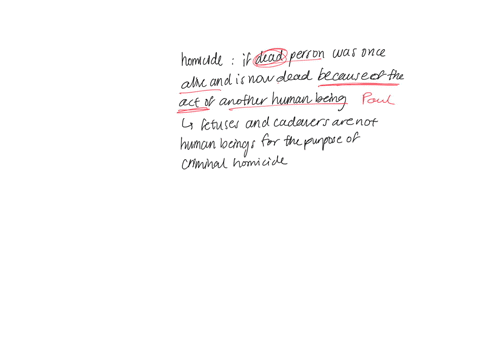 homicide : if dead person was once
alive and is now dead because of the
act of another human being Paul
↳ fetuses and cadavers are not
human beings for the purpose of
criminal homicide